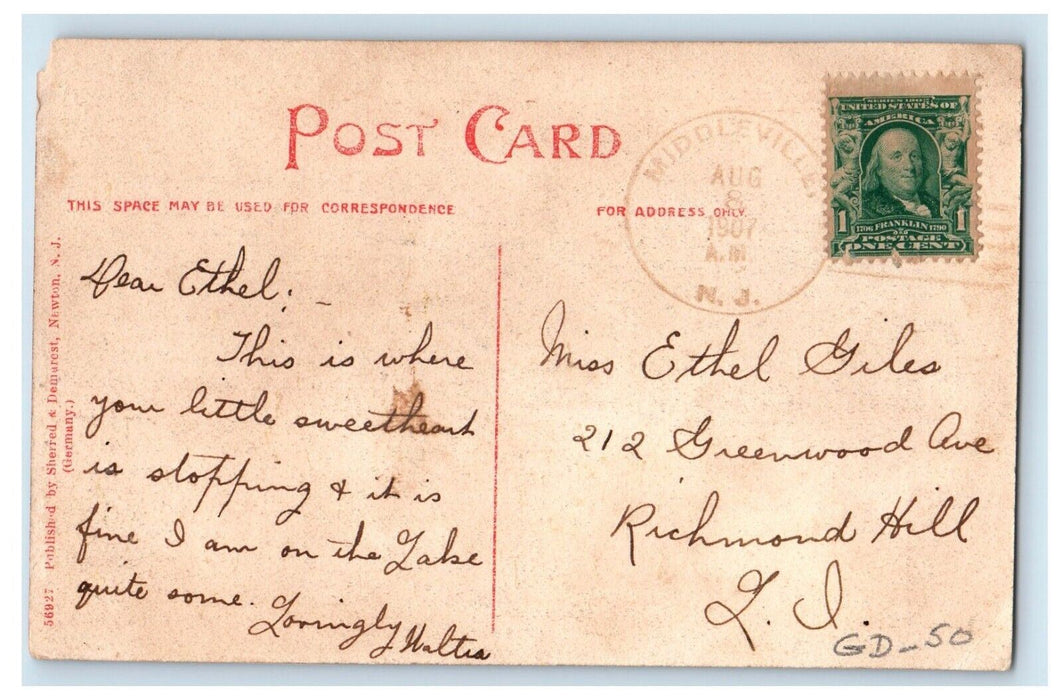 POST CARD
THIS SPACE MAY BE USED FOR CORRESPONDENCE
FOR ADDRESS ONLY.
MIDDLEVILLE,
AUG
8
1907
A.M.
N. J.
SERIES 1902
UNITED STATES OF
AMERICA
1 1
1706 FRANKLIN 1790
POSTAGE
ONE CENT
56927 Published by Sherred & Demarest, Newton, N. J.
(Germany.)
Dear Ethel: –
This is where
your little sweetheart
is stopping & it is
fine I am on the Lake
quite some.
Lovingly
Miss Ethel Giles
212 Greenwood Ave
Richmond Hill
L. I.
GD-50